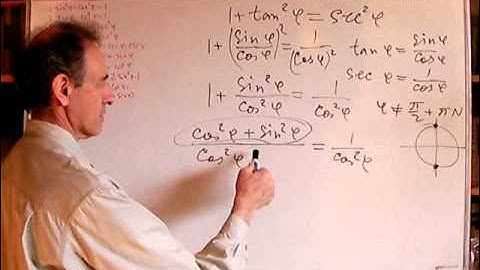 1 + tan²φ = sec²φ
1 + (sin φ / cos φ)² = 1 / (cos φ)²
tan φ = sin φ / cos φ
sec φ = 1 / cos φ
1 + sin²φ / cos²φ = 1 / cos²φ
φ ≠ π/2 + πN
cos²φ + sin²φ / cos²φ = 1 / cos²φ